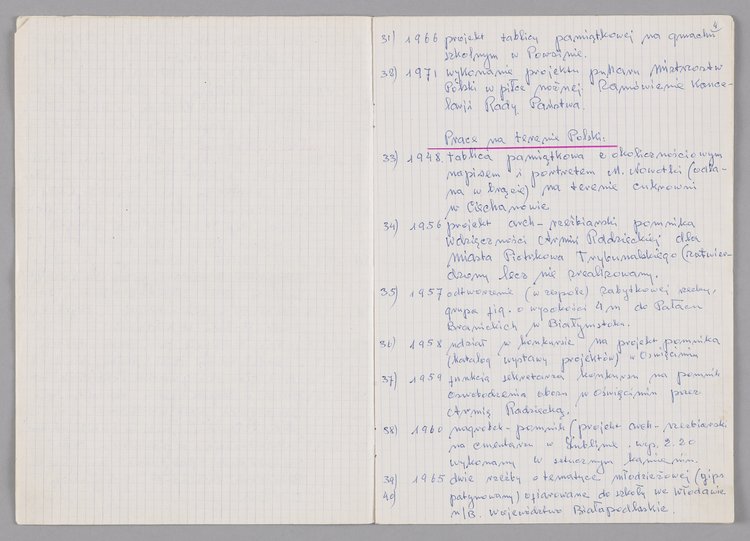 4
31) 1966 projekt tablicy pamiątkowej na gmachu
szkolnym w Powsinie.
32) 1971 wykonanie projektu pucharu Mistrzostw
Polski w piłce nożnej. Zamówienie Kance-
larii Rady Państwa.
Prace na terenie Polski:
33) 1948. tablica pamiątkowa z okolicznościowym
napisem i portretem M. Nowotki (odla-
na w brązie) na terenie cukrowni
w Ciechanowie
34) 1956 projekt arch-rzeźbiarski pomnika
wdzięczności Armii Radzieckiej dla
miasta Piotrkowa Trybunalskiego (zatwier-
dzony lecz nie zrealizowany.
35) 1957 odtworzenie (w zespole) zabytkowej rzeźby,
grupa fig. o wysokości 4 m do Pałacu
Branickich w Białymstoku.
36) 1958 udział w konkursie na projekt pomnika
(katalog wystawy projektów) w Oświęcimiu
37) 1959 funkcja sekretarza konkursu na pomnik
oswobodzenia obozu w Oświęcimiu przez
Armię Radziecką.
38) 1960 nagrobek-pomnik (projekt arch-rzeźbiarski
na cmentarzu w Lublinie. wys. 2.20
wykonany w sztucznym kamieniu.
39) 1965 dwie rzeźby o tematyce młodzieżowej (gips
40) patynowany) ofiarowane do szkoły we Włodawie
n/B. województwo Białapodlaskie.